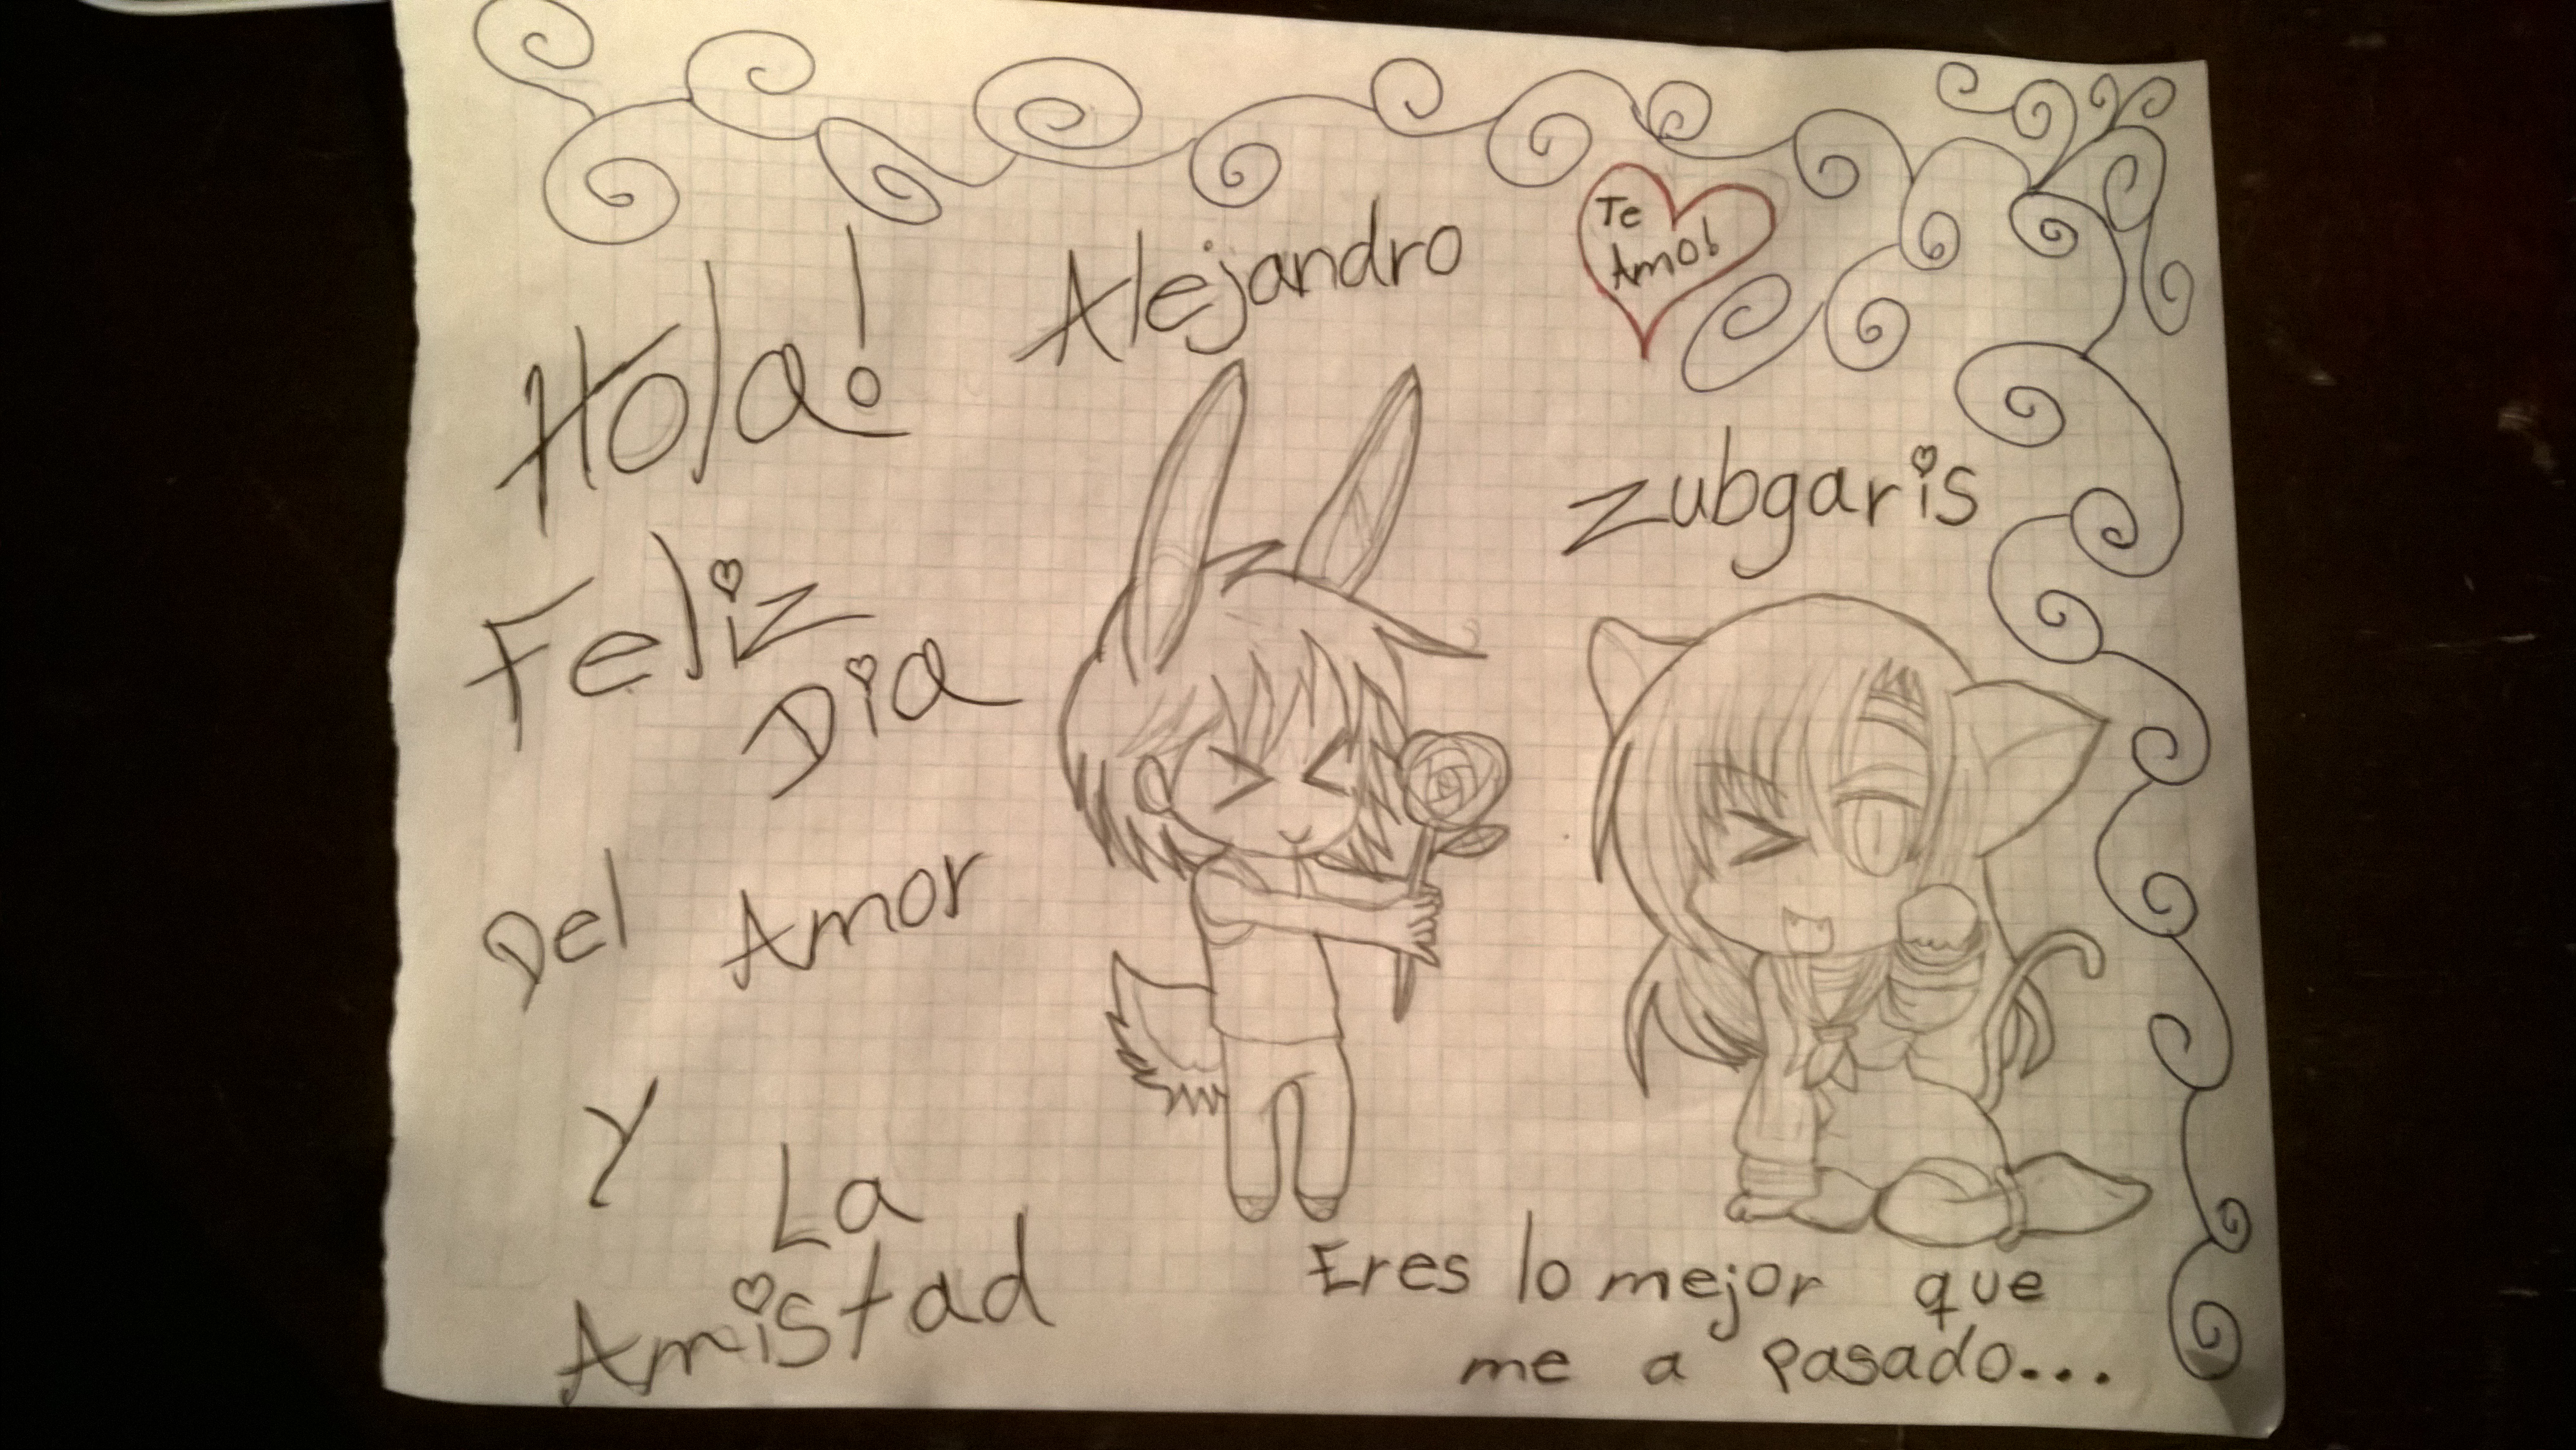 Hola!
Alejandro
Te
Amo!
zubgaris
Feliz
Dia
Del Amor
Y La
Amistad
Eres lo mejor que
me a pasado...